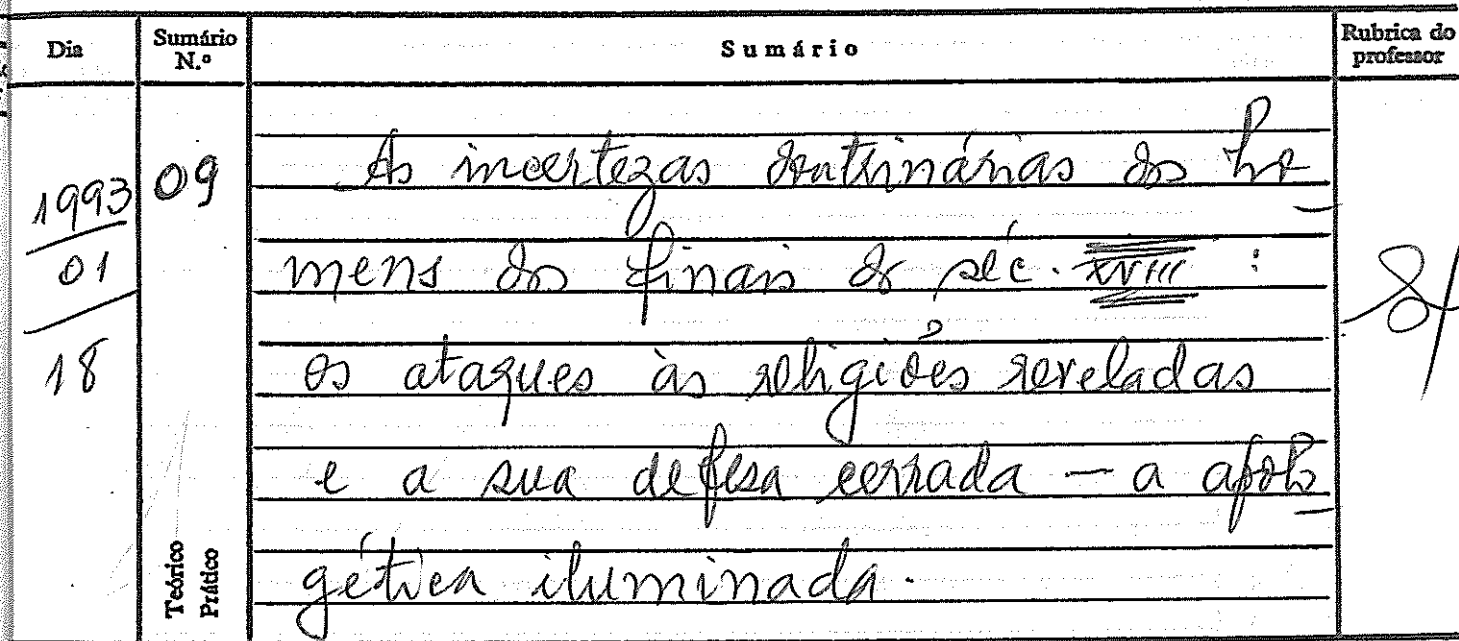 Dia Sumário N.º Sumário Rubrica do professor
1993 09 As incertezas doutrinárias dos ho
01 mens dos finais do séc. XVIII :
18 os ataques às religiões reveladas
e a sua defesa cerrada — a apolo
Teórico Prático gética iluminada.